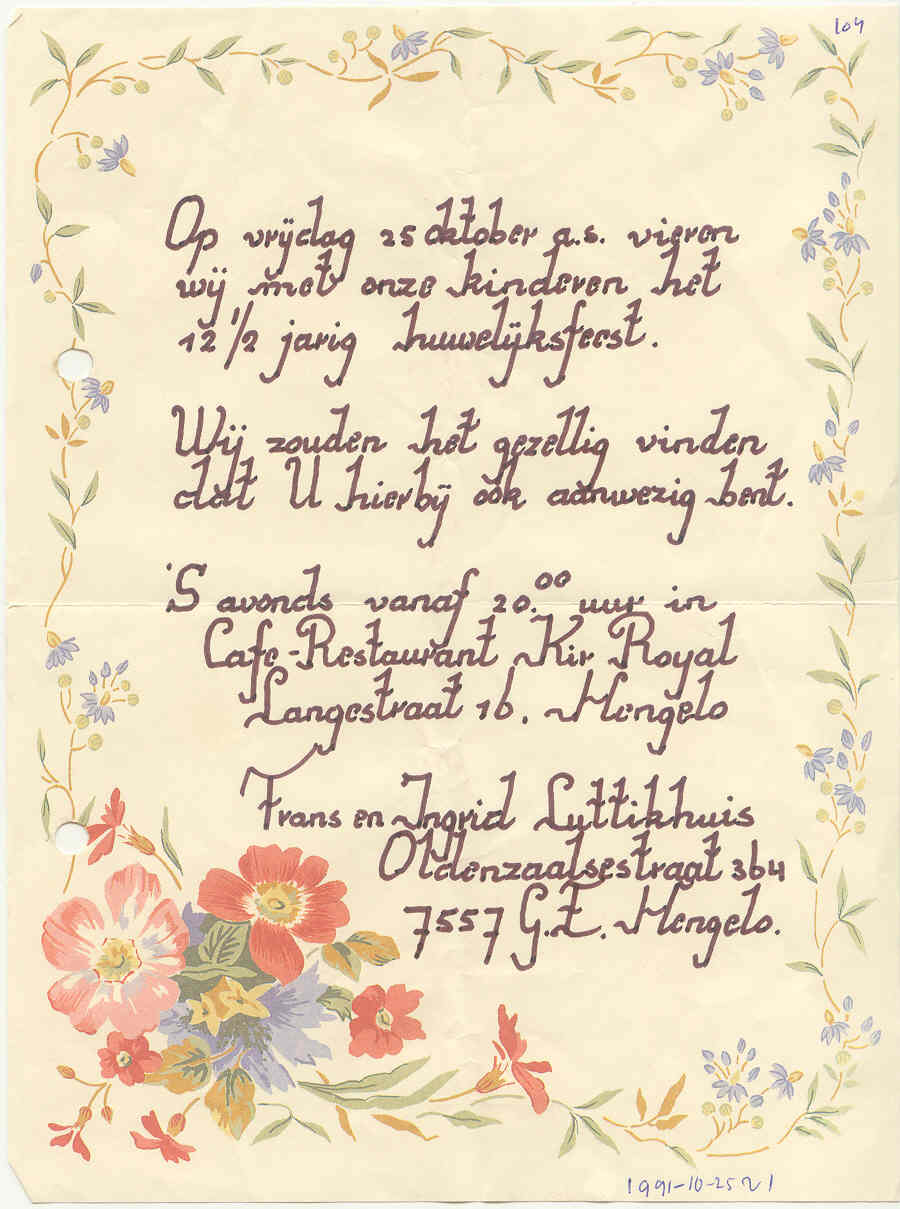 104
Op vrijdag 25 oktober a.s. vieren
wij met onze kinderen het
12 1/2 jarig huwelijksfeest.
Wij zouden het gezellig vinden
dat U hierbij ook aanwezig bent.
'S avonds vanaf 20.00 uur in
Cafe-Restaurant Kir Royal
Langestraat 16. Hengelo
Frans en Ingrid Luttikhuis
Oldenzaalsestraat 364
7557 G.Z. Hengelo.
1991-10-25